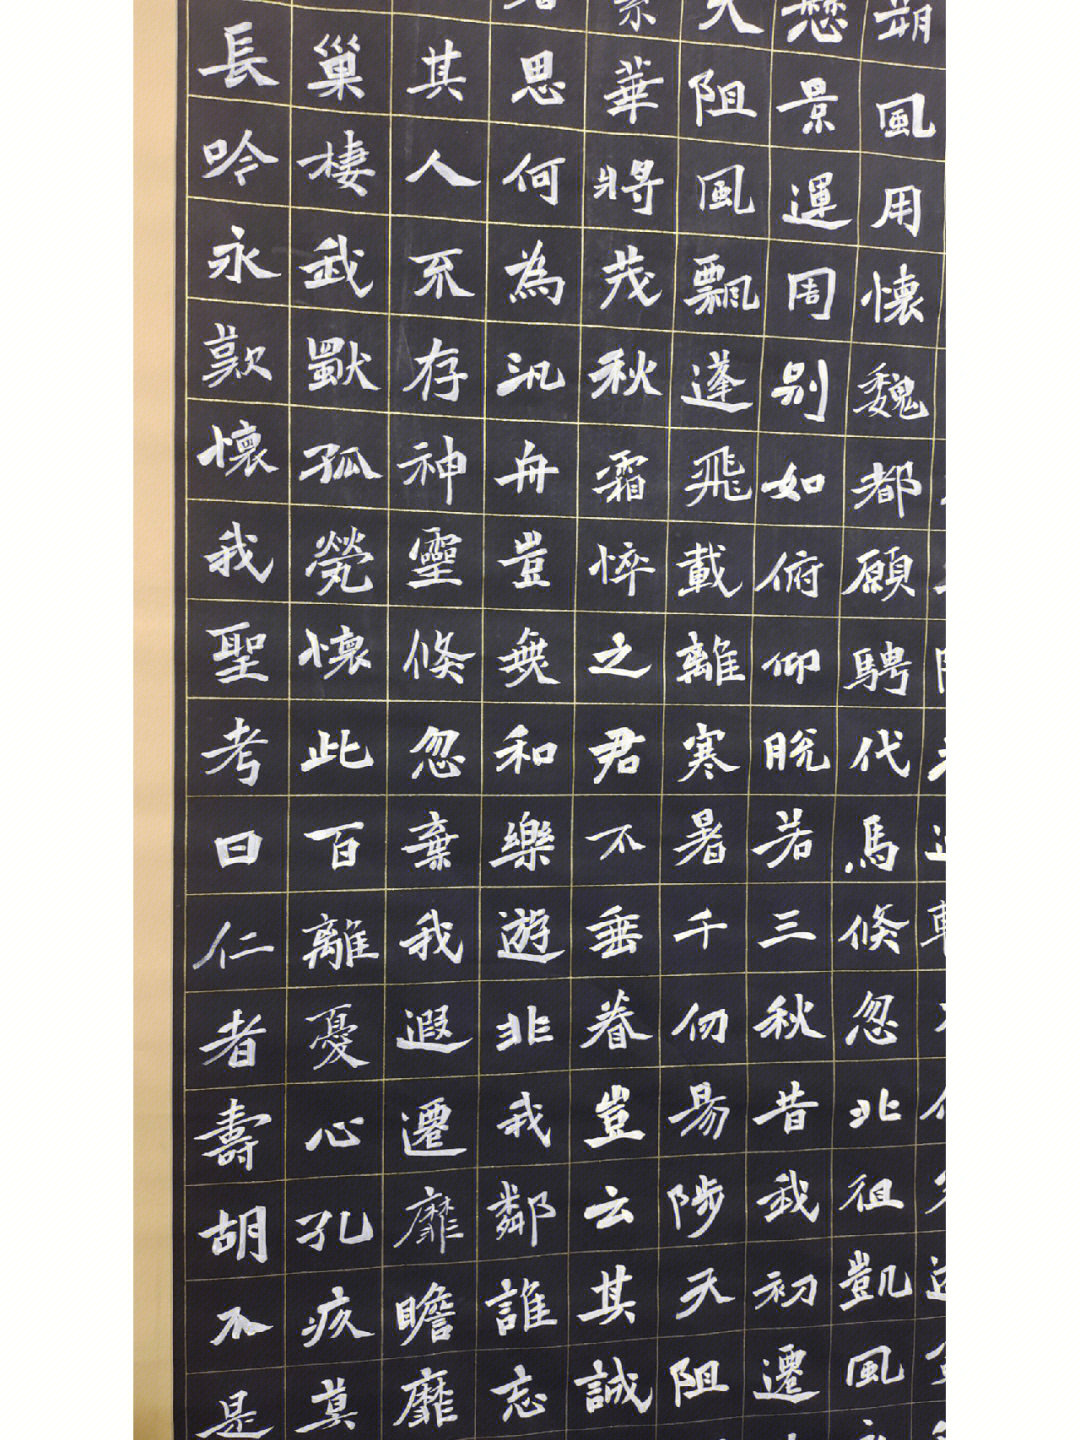 朔風用懷魏都願騁代馬倏忽北徂凱風
愁景運周別如俯仰脫若三秋昔我初遷
天阻風飄蓬飛載離寒暑千仞易陟天阻
華將茂秋霜悴之君不垂眷豈云其誠
思何為汎舟豈無和樂遊非我鄰誰忘
其人不存神靈倏忽棄我遐遷靡瞻靡
巢棲武獸孤煢懷此百離憂心孔疚莫
長吟永歎懷我聖考曰仁者壽胡不是